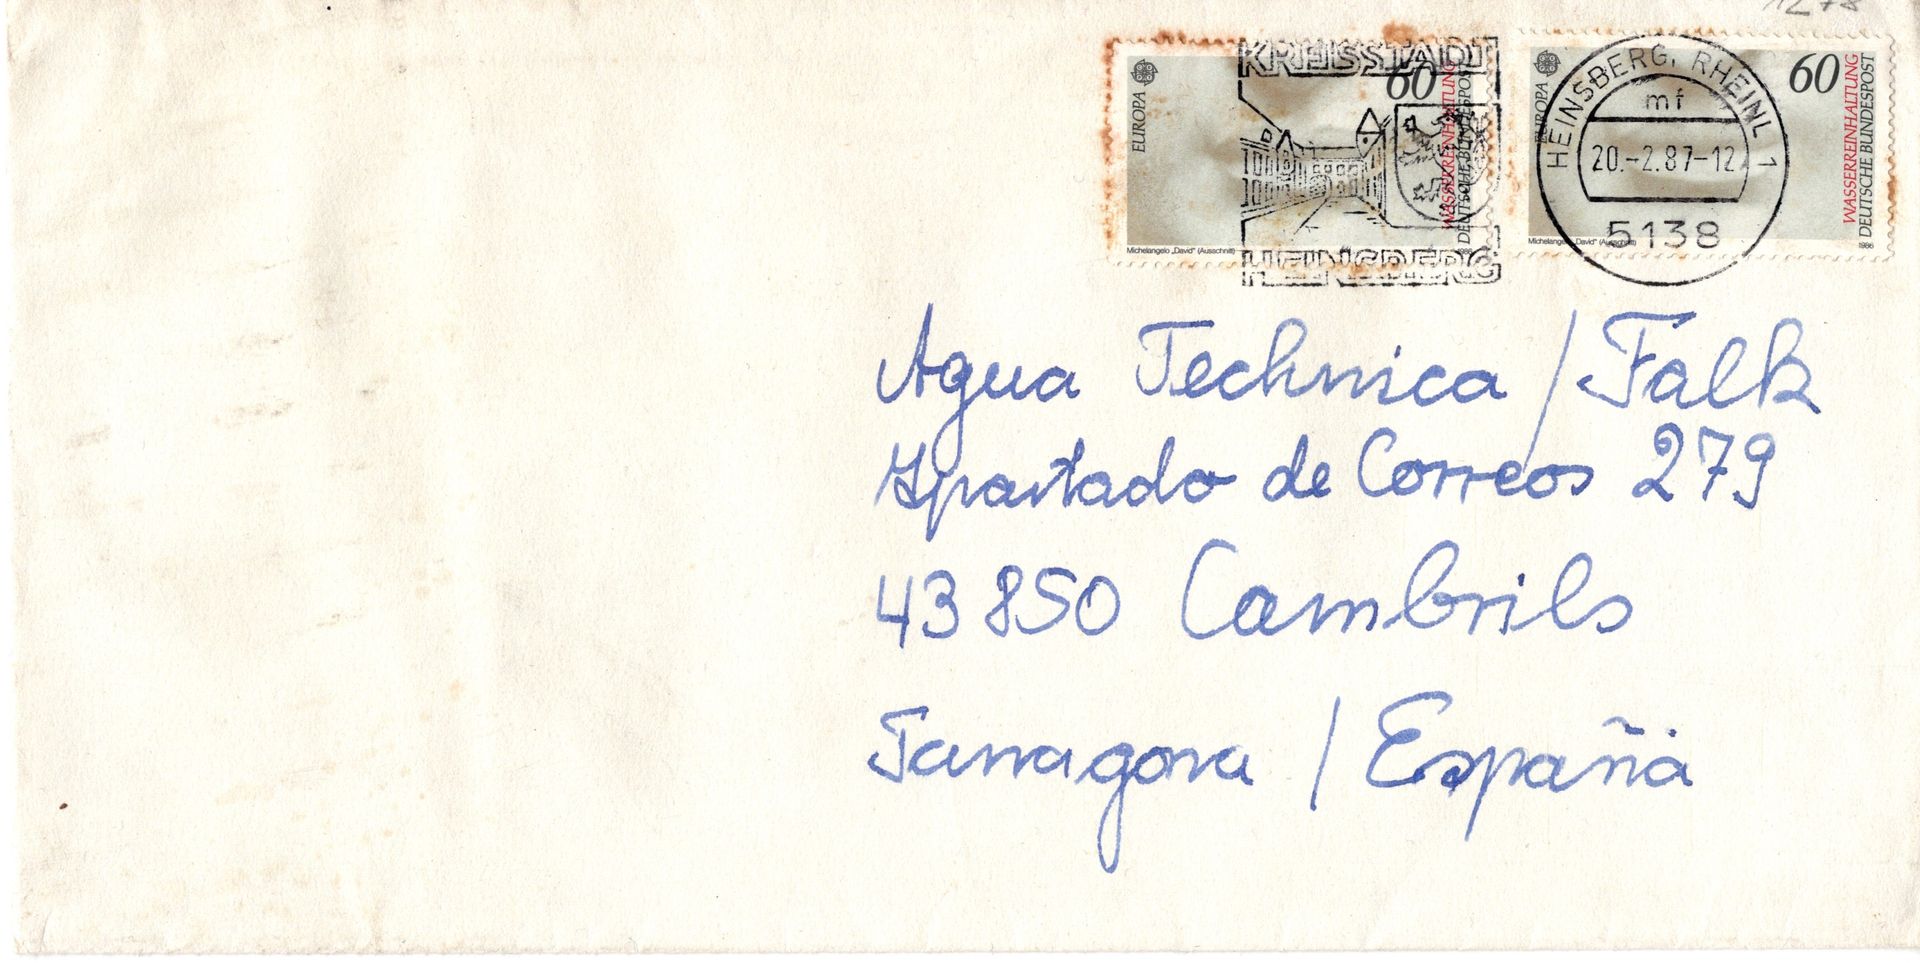 1278
KREISSTADT
HEINSBERG
EUROPA
60
WASSERREINHALTUNG
DEUTSCHE BUNDESPOST
Michelangelo „David“ (Ausschnitt)
1986
EUROPA
60
WASSERREINHALTUNG
DEUTSCHE BUNDESPOST
Michelangelo „David“ (Ausschnitt)
1986
HEINSBERG, RHEINL 1
mf
20.-2.87-12
5138
Agua Technica / Falk
Apartado de Correos 279
43850 Cambrils
Tarragona / España